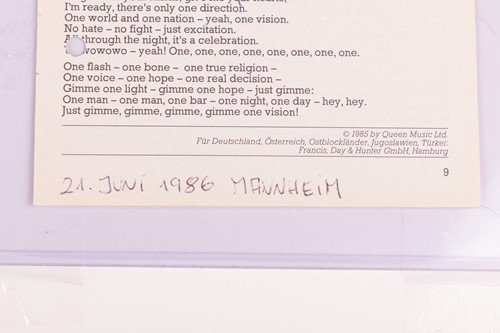 I'm ready, there's only one direction.
One world and one nation – yeah, one vision.
No hate – no fight – just excitation.
through the night, it's a celebration.
wowowo – yeah! One, one, one, one, one, one, one.
One flash – one bone – one true religion –
One voice – one hope – one real decision –
Gimme one light – gimme one hope – just gimme:
One man – one man, one bar – one night, one day – hey, hey.
Just gimme, gimme, gimme, gimme one vision!
© 1985 by Queen Music Ltd.
Für Deutschland, Österreich, Ostblockländer, Jugoslawien, Türkei:
Francis, Day & Hunter GmbH, Hamburg
9
21. JUNI 1986 MANNHEIM